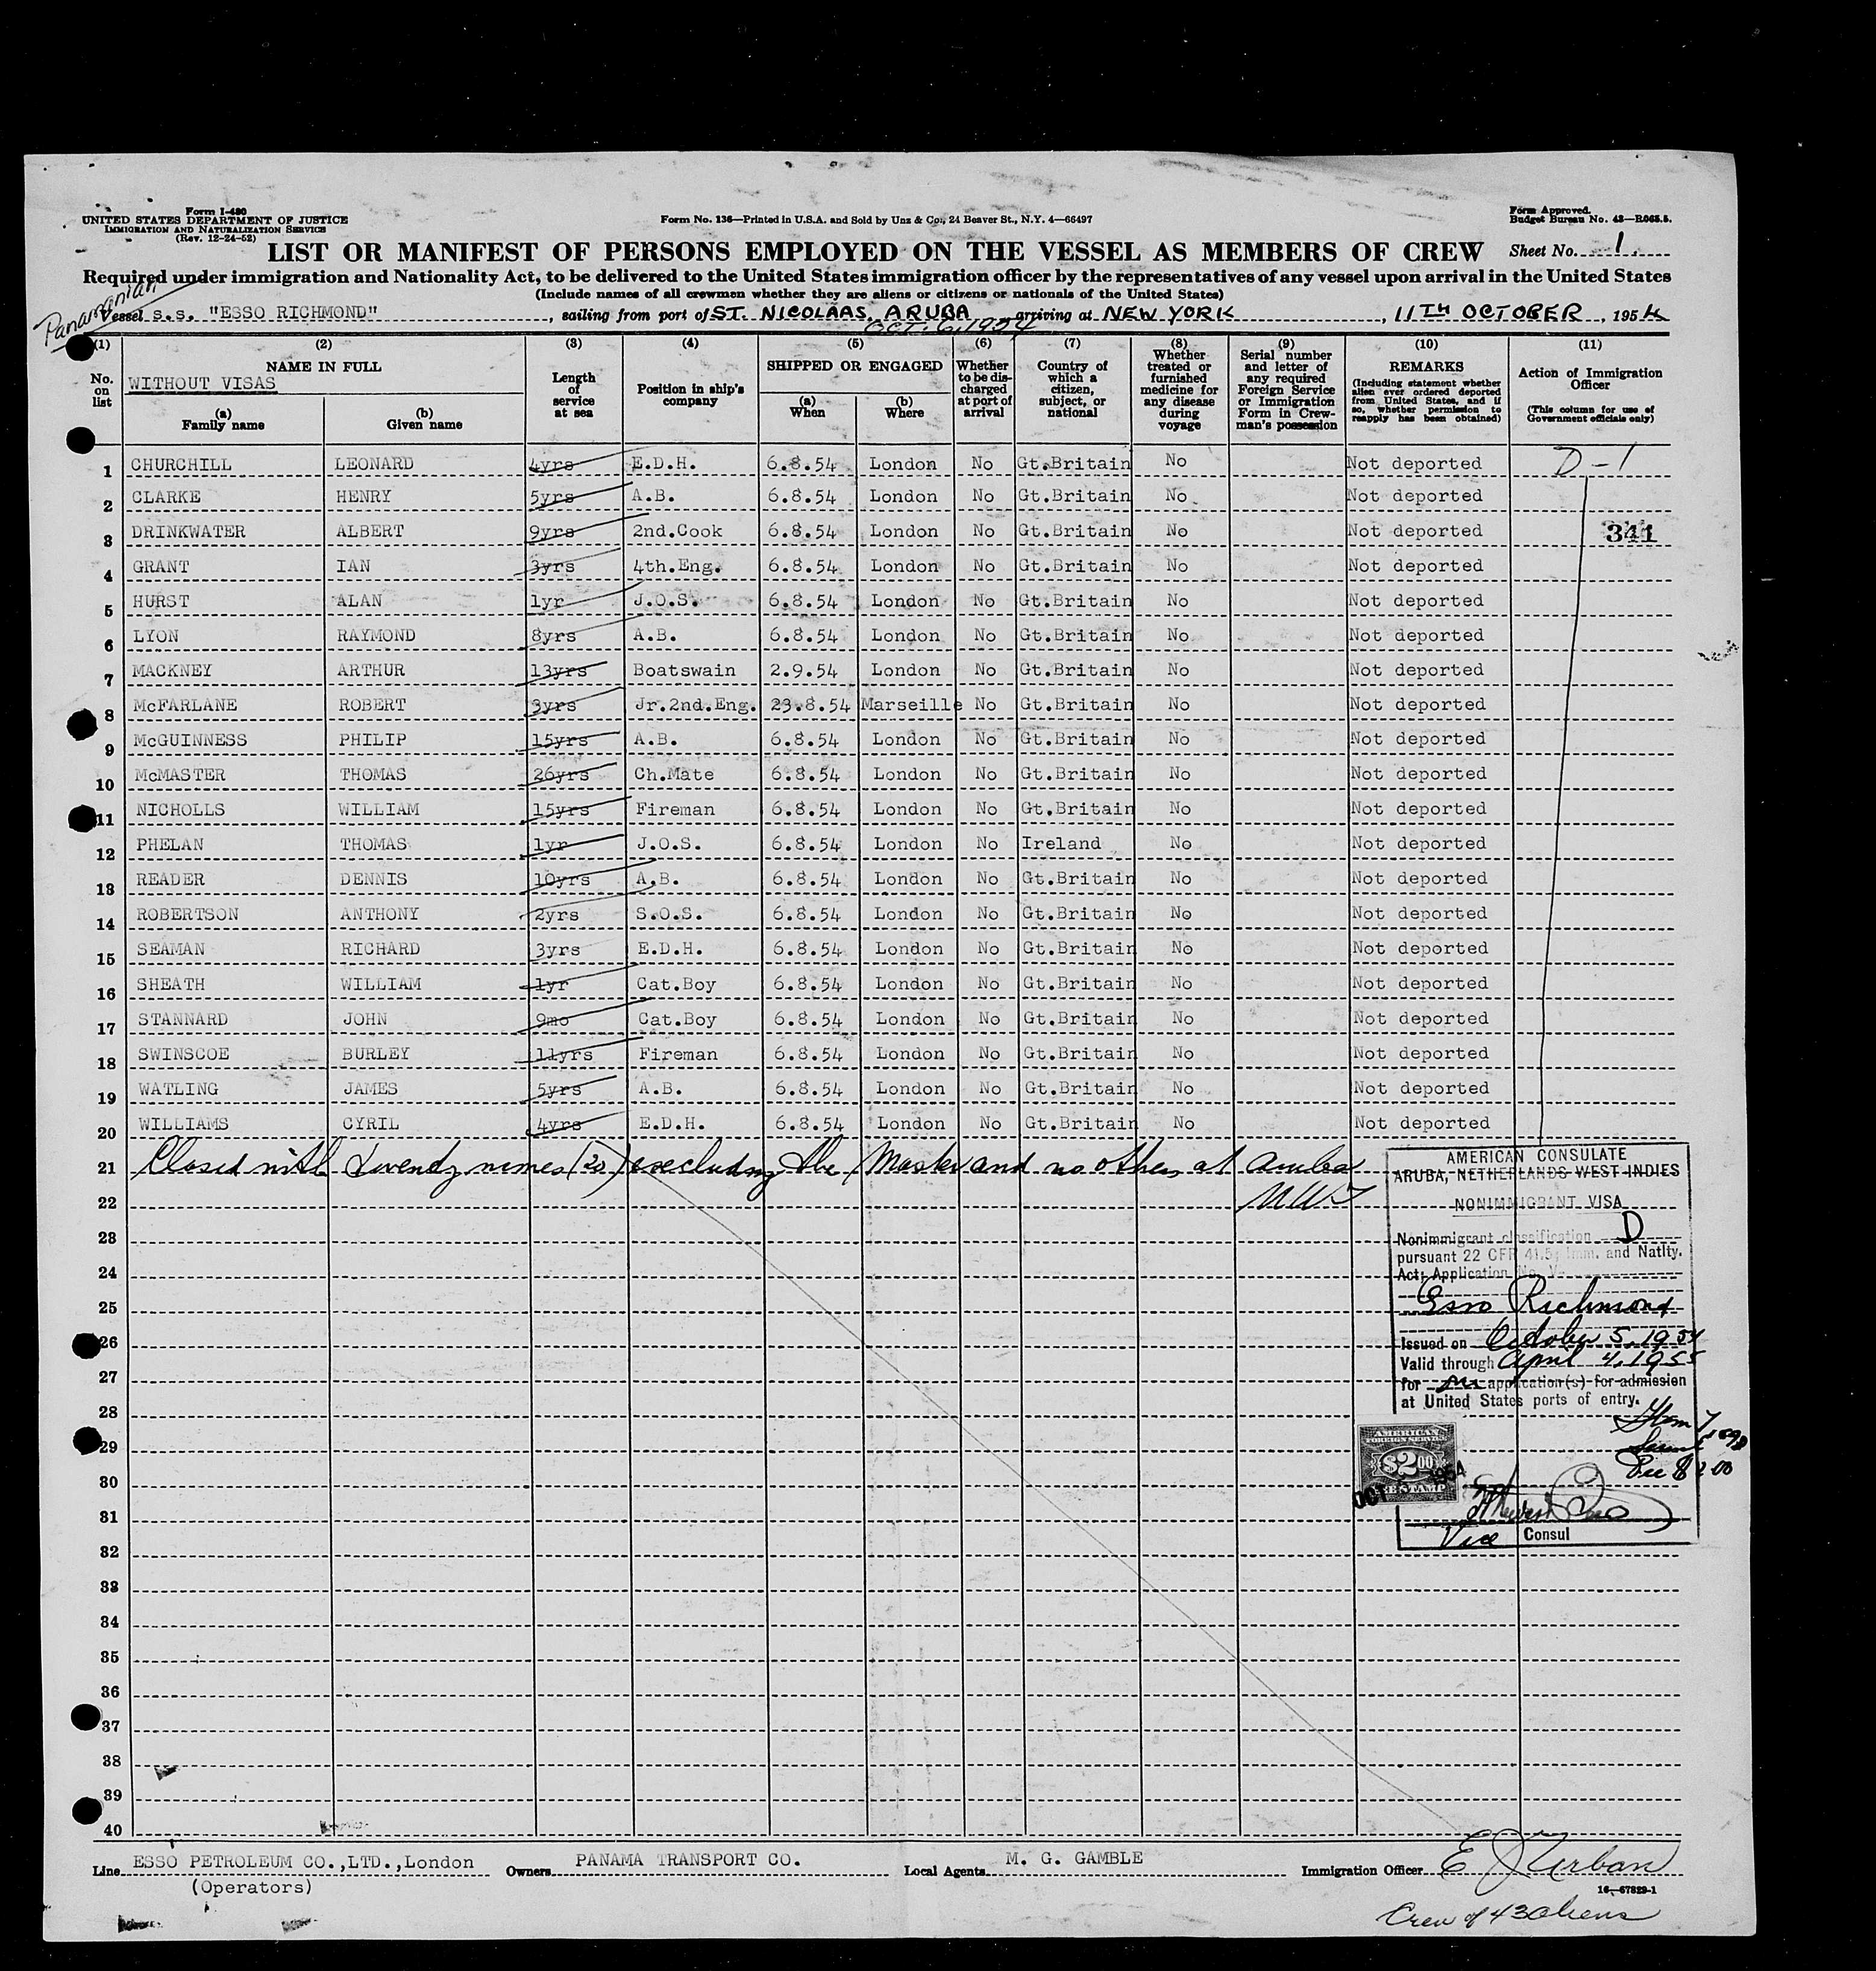 Form I-480
UNITED STATES DEPARTMENT OF JUSTICE
IMMIGRATION AND NATURALIZATION SERVICE
(Rev. 12-24-52)
Form No. 136—Printed in U.S.A. and Sold by Unz & Co., 24 Beaver St., N.Y. 4—66497
Form Approved.
Budget Bureau No. 43—R065.5.
LIST OR MANIFEST OF PERSONS EMPLOYED ON THE VESSEL AS MEMBERS OF CREW
Sheet No. 1.
Required under immigration and Nationality Act, to be delivered to the United States immigration officer by the representatives of any vessel upon arrival in the United States
(Include names of all crewmen whether they are aliens or citizens or nationals of the United States)
Panamanian
Vessel s.s. "ESSO RICHMOND", sailing from port of ST. NICOLAAS, ARUBA arriving at NEW YORK, 11TH OCTOBER, 1954
OCT. 6, 1954
(1) (2) (3) (4) (5) (6) (7) (8) (9) (10) (11)
No. on list
NAME IN FULL
WITHOUT VISAS
(a) Family name
(b) Given name
Length of service at sea
Position in ship's company
SHIPPED OR ENGAGED
(a) When
(b) Where
Whether to be discharged at port of arrival
Country of which a citizen, subject, or national
Whether treated or furnished medicine for any disease during voyage
Serial number and letter of any required Foreign Service or Immigration Form in Crewman's possession
REMARKS
(Including statement whether alien ever ordered deported from United States, and if so, whether permission to reapply has been obtained)
Action of Immigration Officer
(This column for use of Government officials only)
1 CHURCHILL LEONARD 4yrs E.D.H. 6.8.54 London No Gt.Britain No Not deported D-1
2 CLARKE HENRY 5yrs A.B. 6.8.54 London No Gt.Britain No Not deported
3 DRINKWATER ALBERT 9yrs 2nd.Cook 6.8.54 London No Gt.Britain No Not deported 341
4 GRANT IAN 3yrs 4th.Eng. 6.8.54 London No Gt.Britain No Not deported
5 HURST ALAN 1yr J.O.S. 6.8.54 London No Gt.Britain No Not deported
6 LYON RAYMOND 8yrs A.B. 6.8.54 London No Gt.Britain No Not deported
7 MACKNEY ARTHUR 13yrs Boatswain 2.9.54 London No Gt.Britain No Not deported
8 McFARLANE ROBERT 3yrs Jr.2nd.Eng. 23.8.54 Marseille No Gt.Britain No Not deported
9 McGUINNESS PHILIP 15yrs A.B. 6.8.54 London No Gt.Britain No Not deported
10 McMASTER THOMAS 26yrs Ch.Mate 6.8.54 London No Gt.Britain No Not deported
11 NICHOLLS WILLIAM 15yrs Fireman 6.8.54 London No Gt.Britain No Not deported
12 PHELAN THOMAS 1yr J.O.S. 6.8.54 London No Ireland No Not deported
13 READER DENNIS 10yrs A.B. 6.8.54 London No Gt.Britain No Not deported
14 ROBERTSON ANTHONY 2yrs S.O.S. 6.8.54 London No Gt.Britain No Not deported
15 SEAMAN RICHARD 3yrs E.D.H. 6.8.54 London No Gt.Britain No Not deported
16 SHEATH WILLIAM 1yr Cat.Boy 6.8.54 London No Gt.Britain No Not deported
17 STANNARD JOHN 9mo Cat.Boy 6.8.54 London No Gt.Britain No Not deported
18 SWINSCOE BURLEY 11yrs Fireman 6.8.54 London No Gt.Britain No Not deported
19 WATLING JAMES 5yrs A.B. 6.8.54 London No Gt.Britain No Not deported
20 WILLIAMS CYRIL 4yrs E.D.H. 6.8.54 London No Gt.Britain No Not deported
21 Closed with twenty names (20) excluding the Master and no others at Aruba
22
23
24
25
26
27
28
29
30
31
32
33
34
35
36
37
38
39
40
AMERICAN CONSULATE
ARUBA, NETHERLANDS WEST INDIES
NONIMMIGRANT VISA
Nonimmigrant classification D
pursuant 22 CFR 41.5; Imm. and Natlty.
Act; Application No. V-
Esso Richmond
Issued on October 5, 1954
Valid through April 4, 1955
for application(s) for admission
at United States ports of entry.
Fee $2.00
AMERICAN
FOREIGN SERVICE
$2.00
FEE STAMP
OCT 1954
Vice Consul
Line ESSO PETROLEUM CO.,LTD.,London Owners PANAMA TRANSPORT CO. Local Agents M. G. GAMBLE Immigration Officer E J Urban
(Operators)
16—67829-1
Crew of 43 Aliens